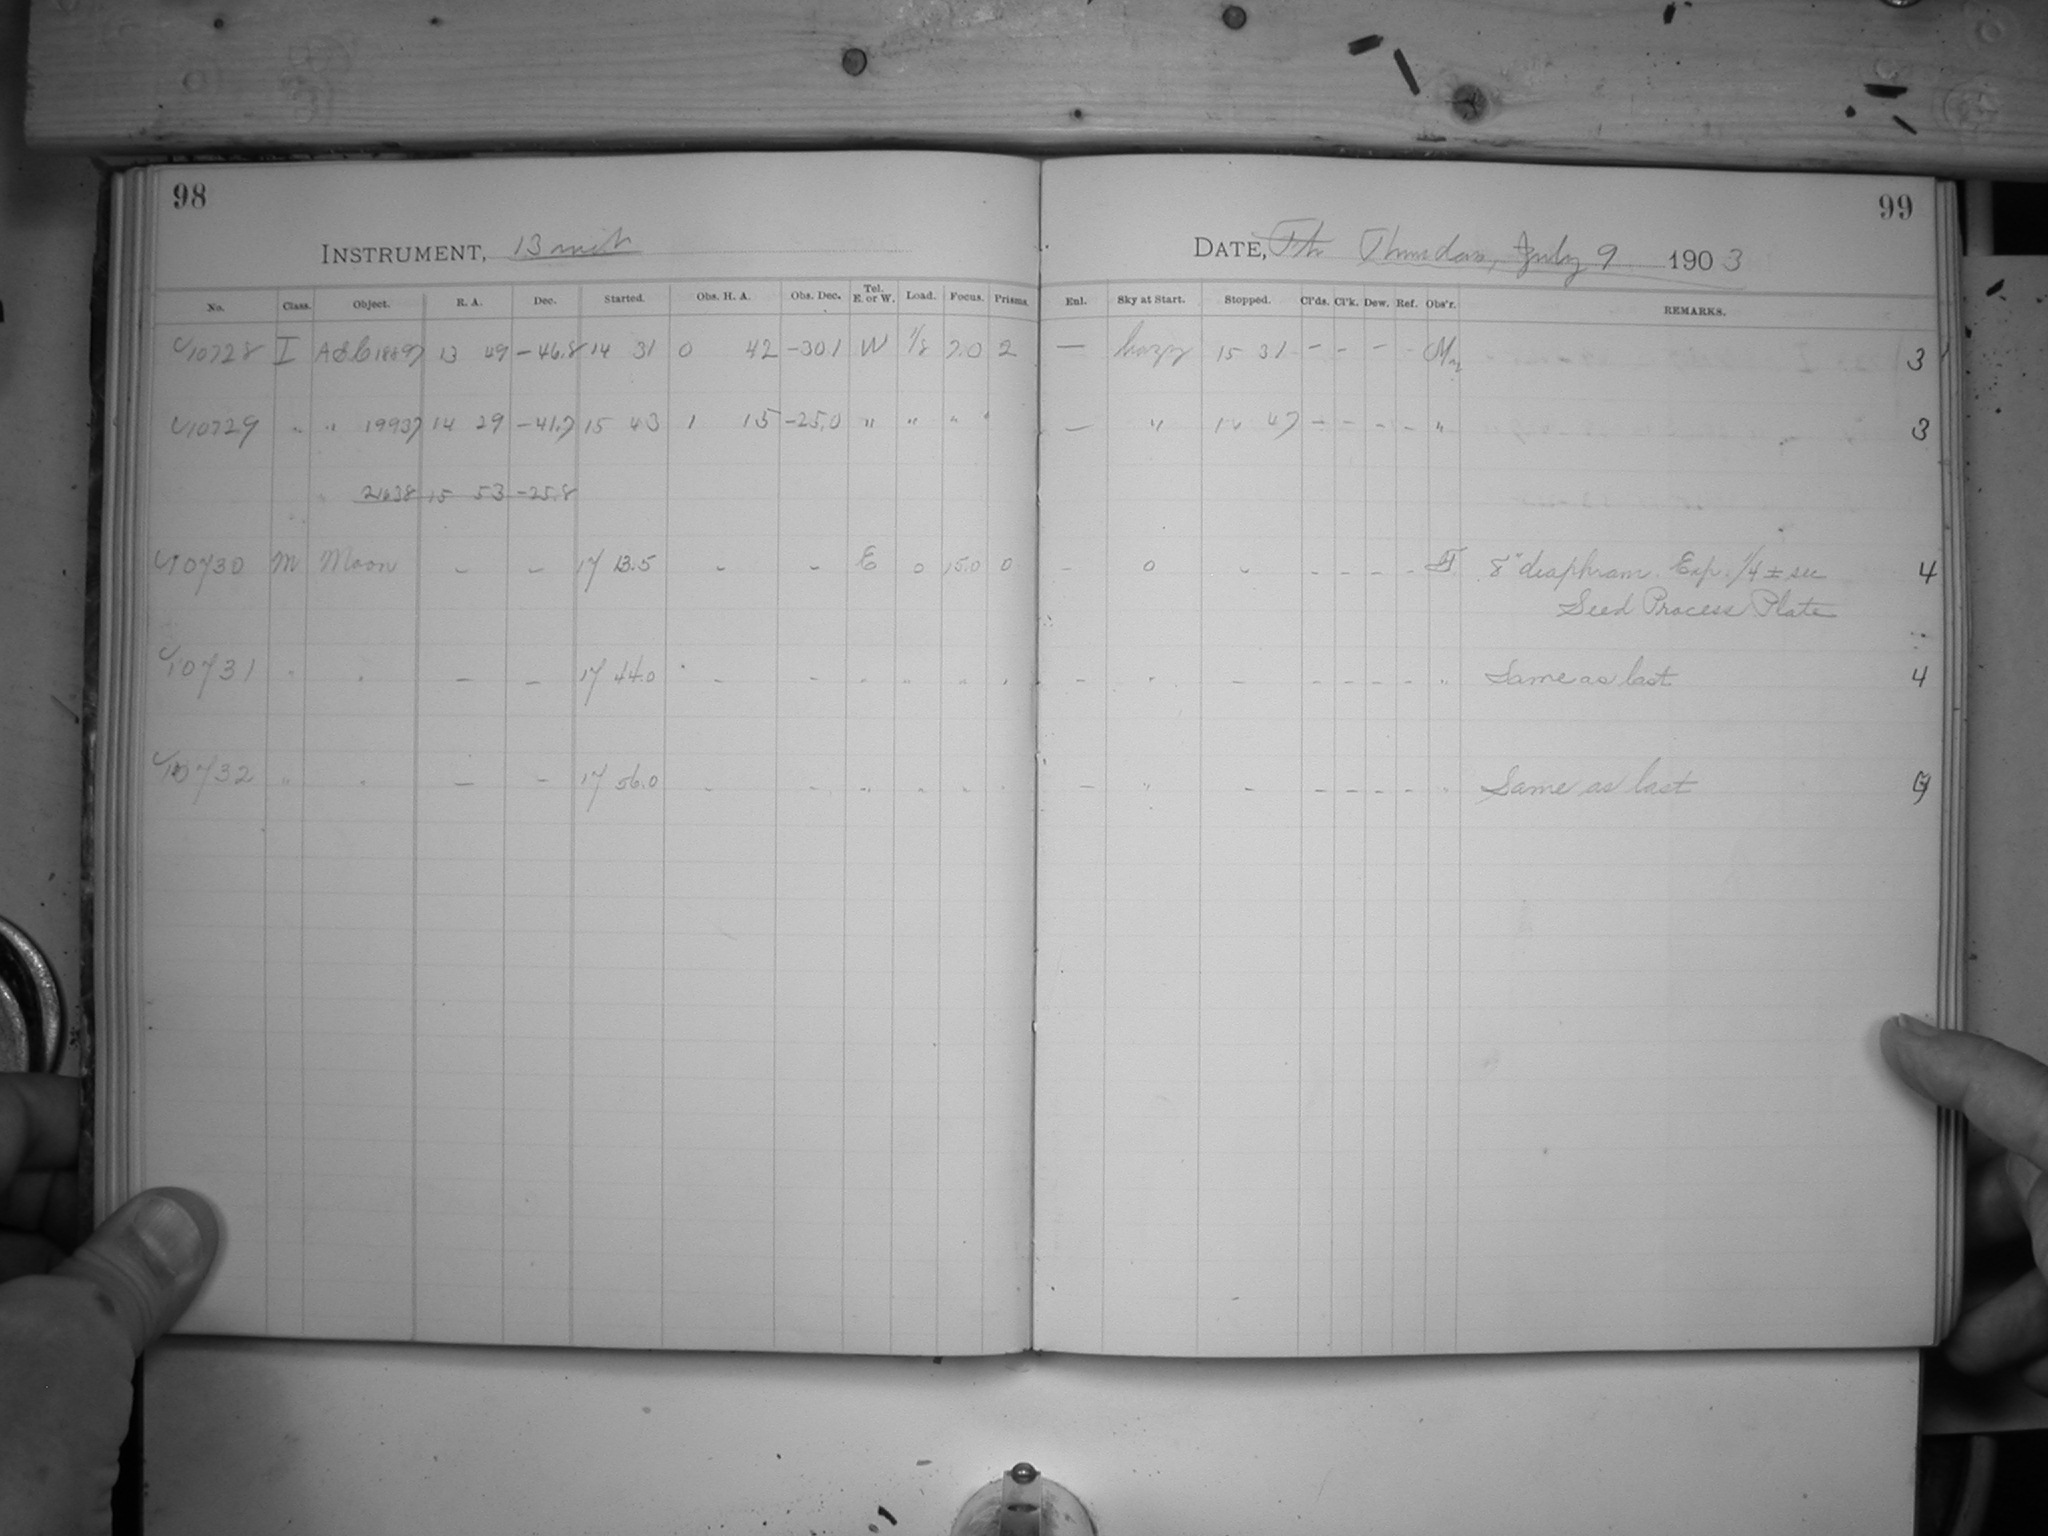 98
99
INSTRUMENT, 13 inch
DATE, Th Thursday, July 9 1903
No. Class. Object. R. A. Dec. Started. Obs. H. A. Obs. Dec. Tel. E. or W. Load. Focus. Prisms. Enl. Sky at Start. Stopped. Cl'ds. Cl'k. Dew. Ref. Obs'r. REMARKS.
10728 I AGC 18897 13 49 -46.8 14 31 0 42 -30.1 W 1/8 7.0 2 — hazy 15 31 - - - - 3
10729 " " 19937 14 29 -41.7 15 43 1 15 -25.0 " " " " — " 47 - - - - " 3
21638 15 53 -25.8
10730 M Moon - - 17 13.5 - - E 0 15.0 0 - 0 - - - - - 8" diaphram. Exp. 1/4 ± sec 4
Seed Process Plate
10731 " " - - 17 44.0 - - " " " " - " - - - - - " Same as last 4
10732 " " - - 17 56.0 - - " " " " - " - - - - - " Same as last